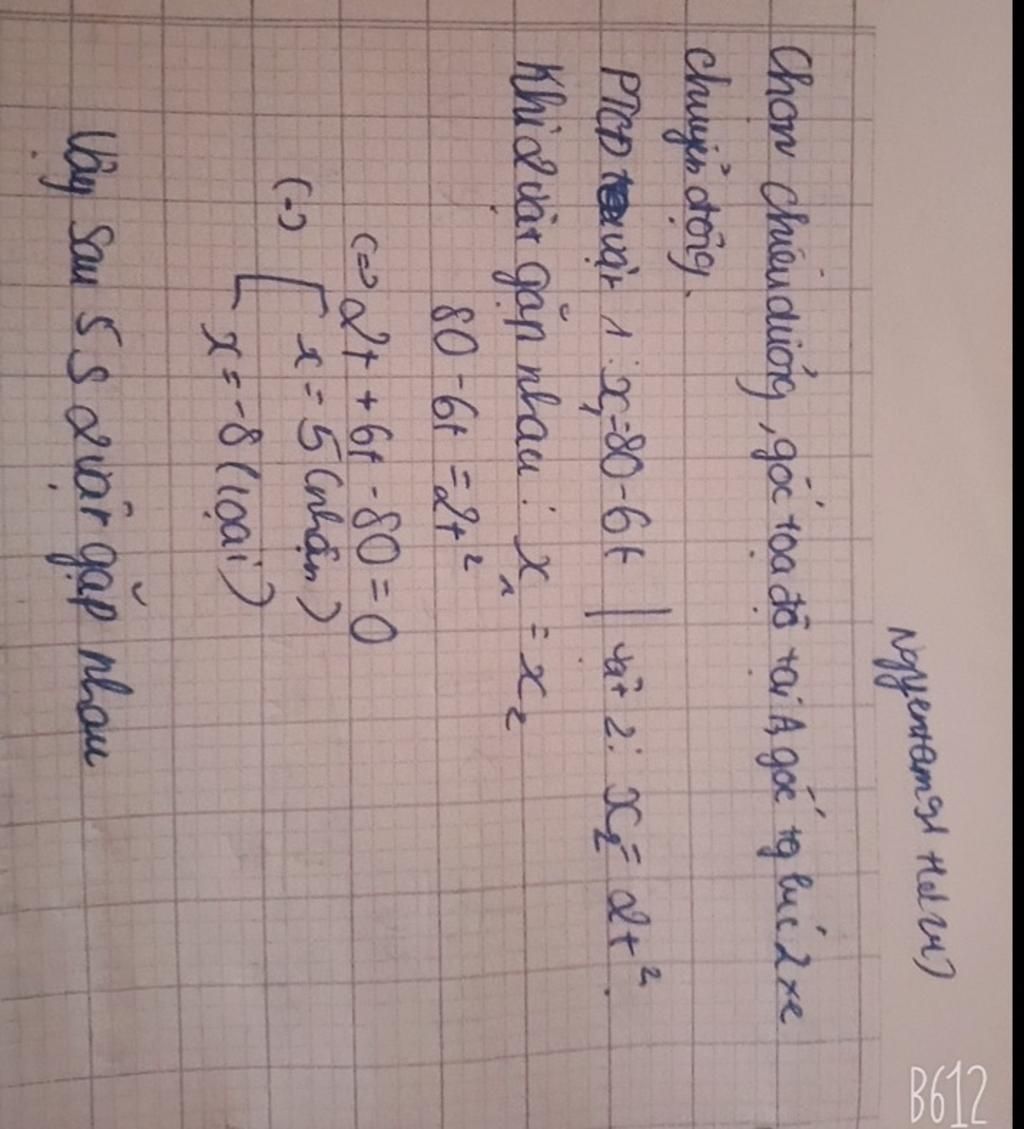 Chọn chiều dương, gốc toạ độ tại A, gốc tg lúc 2 xe
chuyển động.
PTCĐ vật 1: x₁=80-6t | vật 2: x₂= 2t².
Khi 2 vật gặp nhau: x₁ = x₂
80 - 6t = 2t²
(=) 2t + 6t - 80 = 0
(=) [ x = 5 (nhận)
x = -8 (loại)
Vậy sau 5 s 2 vật gặp nhau
B612